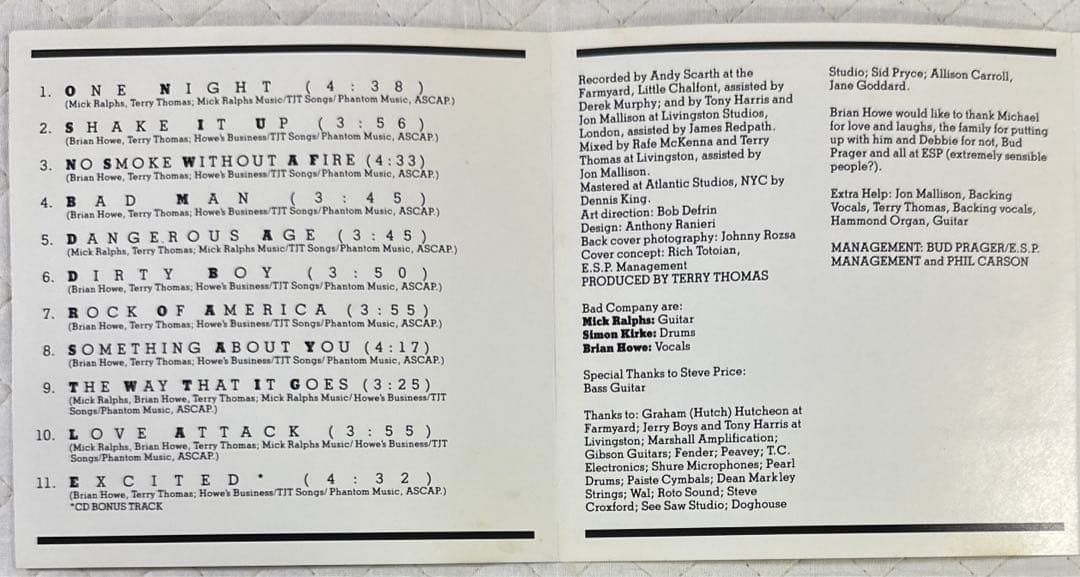 1. ONE NIGHT (4:38)
(Mick Ralphs, Terry Thomas; Mick Ralphs Music/TJT Songs/Phantom Music, ASCAP.)
2. SHAKE IT UP (3:56)
(Brian Howe, Terry Thomas; Howe's Business/TJT Songs/Phantom Music, ASCAP.)
3. NO SMOKE WITHOUT A FIRE (4:33)
(Brian Howe, Terry Thomas; Howe's Business/TJT Songs/Phantom Music, ASCAP.)
4. BAD MAN (3:45)
(Brian Howe, Terry Thomas; Howe's Business/TJT Songs/Phantom Music, ASCAP.)
5. DANGEROUS AGE (3:45)
(Mick Ralphs, Terry Thomas; Mick Ralphs Music/TJT Songs/Phantom Music, ASCAP.)
6. DIRTY BOY (3:50)
(Brian Howe, Terry Thomas; Howe's Business/TJT Songs/Phantom Music, ASCAP.)
7. ROCK OF AMERICA (3:55)
(Brian Howe, Terry Thomas; Howe's Business/TJT Songs/Phantom Music, ASCAP.)
8. SOMETHING ABOUT YOU (4:17)
(Brian Howe, Terry Thomas; Howe's Business/TJT Songs/Phantom Music, ASCAP.)
9. THE WAY THAT IT GOES (3:25)
(Mick Ralphs, Brian Howe, Terry Thomas; Mick Ralphs Music/Howe's Business/TJT
Songs/Phantom Music, ASCAP.)
10. LOVE ATTACK (3:55)
(Mick Ralphs, Brian Howe, Terry Thomas; Mick Ralphs Music/Howe's Business/TJT
Songs/Phantom Music, ASCAP.)
11. EXCITED * (4:32)
(Brian Howe, Terry Thomas; Howe's Business/TJT Songs/Phantom Music, ASCAP.)
*CD BONUS TRACK
Recorded by Andy Scarth at the
Farmyard, Little Chalfont, assisted by
Derek Murphy; and by Tony Harris and
Jon Mallison at Livingston Studios,
London, assisted by James Redpath.
Mixed by Rafe McKenna and Terry
Thomas at Livingston, assisted by
Jon Mallison.
Mastered at Atlantic Studios, NYC by
Dennis King.
Art direction: Bob Defrin
Design: Anthony Ranieri
Back cover photography: Johnny Rozsa
Cover concept: Rich Totoian,
E.S.P. Management
PRODUCED BY TERRY THOMAS
Bad Company are:
Mick Ralphs: Guitar
Simon Kirke: Drums
Brian Howe: Vocals
Special Thanks to Steve Price:
Bass Guitar
Thanks to: Graham (Hutch) Hutcheon at
Farmyard; Jerry Boys and Tony Harris at
Livingston; Marshall Amplification;
Gibson Guitars; Fender; Peavey; T.C.
Electronics; Shure Microphones; Pearl
Drums; Paiste Cymbals; Dean Markley
Strings; Wal; Roto Sound; Steve
Croxford; See Saw Studio; Doghouse
Studio; Sid Pryce; Allison Carroll,
Jane Goddard.
Brian Howe would like to thank Michael
for love and laughs, the family for putting
up with him and Debbie for not, Bud
Prager and all at ESP (extremely sensible
people?).
Extra Help: Jon Mallison, Backing
Vocals, Terry Thomas, Backing vocals,
Hammond Organ, Guitar
MANAGEMENT: BUD PRAGER/E.S.P.
MANAGEMENT and PHIL CARSON